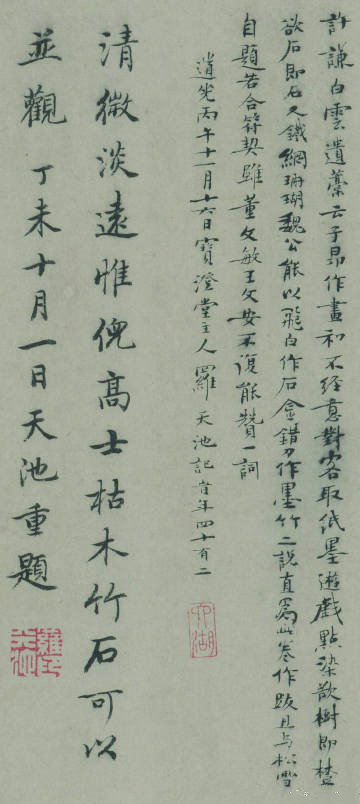 許謙白雲遺藁云子昂作畫初不經意對客取紙墨遊戲點染欲樹即樹
欲石即石又鐵網珊瑚魏公能以飛白作石金錯刀作墨竹二說直爲此卷作跋且与松雪
自題若合符契雖董文敏王文安不復能贊一詞
道光丙午十一月十六日寶澄堂主人羅天池記旹年四十有二
清微淡遠惟倪高士枯木竹石可以
並觀 丁未十月一日天池重題